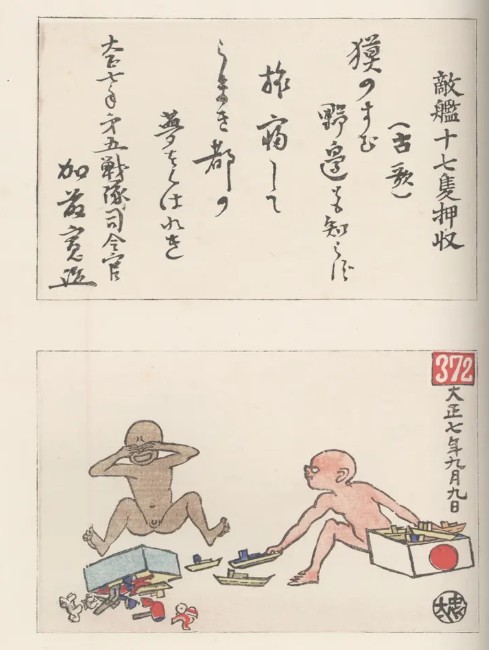 敵艦十七隻押収
(古歌)
獏のすむ
野邊とも知らず
旅宿して
うまき都の
夢をくはれき
大正七年第五戦隊司令官
加藤寛治
372
大正七年九月九日